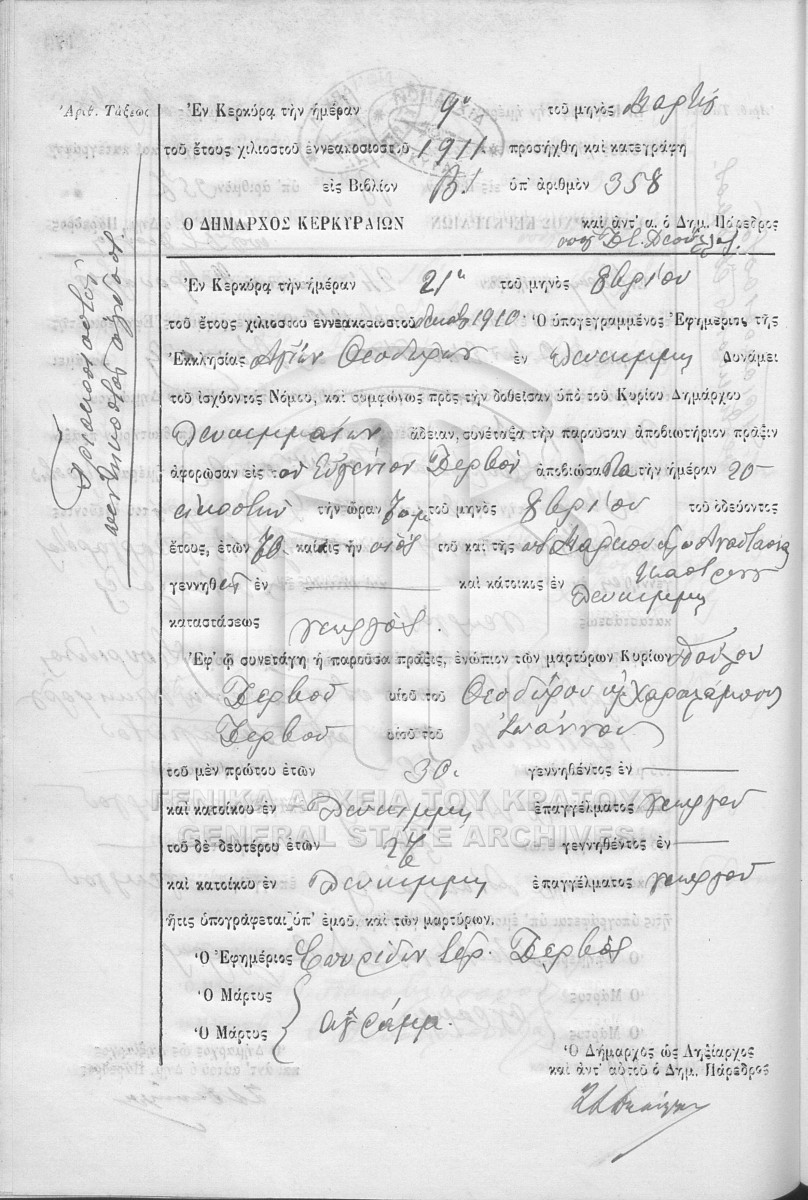 Ἀριθ. Τάξεως
Τριακοσιοστὸς
πεντηκοστὸς ὄγδοος
Ἐν Κερκύρᾳ τὴν ἡμέραν 9ην τοῦ μηνὸς Μαρτίου
τοῦ ἔτους χιλιοστοῦ ἐννεακοσιοστοῦ 1911 προσήχθη καὶ κατεγράφη
εἰς Βιβλίον Β! ὑπ' ἀριθμὸν 358
Ὁ ΔΗΜΑΡΧΟΣ ΚΕΡΚΥΡΑΙΩΝ καὶ ἀντ' α. ὁ Δημ. Πάρεδρος
Ἐν Κερκύρᾳ τὴν ἡμέραν 21ην τοῦ μηνὸς 8βρίου
τοῦ ἔτους χιλιοστοῦ ἐννεακοσιοστοῦ δεκάτου 1910· Ὁ ὑπογεγραμμένος Ἐφημέριος τῆς
Ἐκκλησίας Ἁγίων Θεοδώρων ἐν Λευκίμμῃ Δυνάμει
τοῦ ἰσχύοντος Νόμου, καὶ συμφώνως πρὸς τὴν δοθεῖσαν ὑπὸ τοῦ Κυρίου Δημάρχου
Λευκιμμαίων ἄδειαν, συνέταξα τὴν παροῦσαν ἀποβιωτήριον πρᾶξιν
ἀφορῶσαν εἰς τὸν Εὐγένιον Δερβοῦ ἀποβιώσαντα τὴν ἡμέραν 20 -
εἰκοστὴν τὴν ὥραν 7 μ.μ. τοῦ μηνὸς 8βρίου τοῦ ὁδεύοντος
ἔτους, ἐτῶν 70 καὶ τις ἦν υἱὸς τοῦ καὶ τῆς
γεννηθεὶς ἐν καὶ κάτοικος ἐν Λευκίμμῃ
καταστάσεως γεωργὸς.
Ἐφ' ᾧ συνετάγη ἡ παροῦσα πρᾶξις, ἐνώπιον τῶν μαρτύρων Κυρίων Παύλου
Δερβοῦ υἱοῦ τοῦ Θεοδώρου καὶ Χαραλάμπους
Δερβοῦ υἱοῦ τοῦ Ἰωάννου
τοῦ μὲν πρώτου ἐτῶν 30. γεννηθέντος ἐν
καὶ κατοίκου ἐν Λευκίμμῃ ἐπαγγέλματος γεωργοῦ
τοῦ δὲ δευτέρου ἐτῶν 26 γεννηθέντος ἐν
καὶ κατοίκου ἐν Λευκίμμῃ ἐπαγγέλματος γεωργοῦ
ἥτις ὑπογράφεται ὑπ' ἐμοῦ καὶ τῶν μαρτύρων.
Ὁ Ἐφημέριος Σπυρίδων Ἱερ. Δερβὸς
Ὁ Μάρτυς
Ὁ Μάρτυς ἀγράμμ.
Ὁ Δήμαρχος ὡς Ληξίαρχος
καὶ ἀντ' αὐτοῦ ὁ Δημ. Πάρεδρος
ΓΕΝΙΚΑ ΑΡΧΕΙΑ ΤΟΥ ΚΡΑΤΟΥΣ
GENERAL STATE ARCHIVES